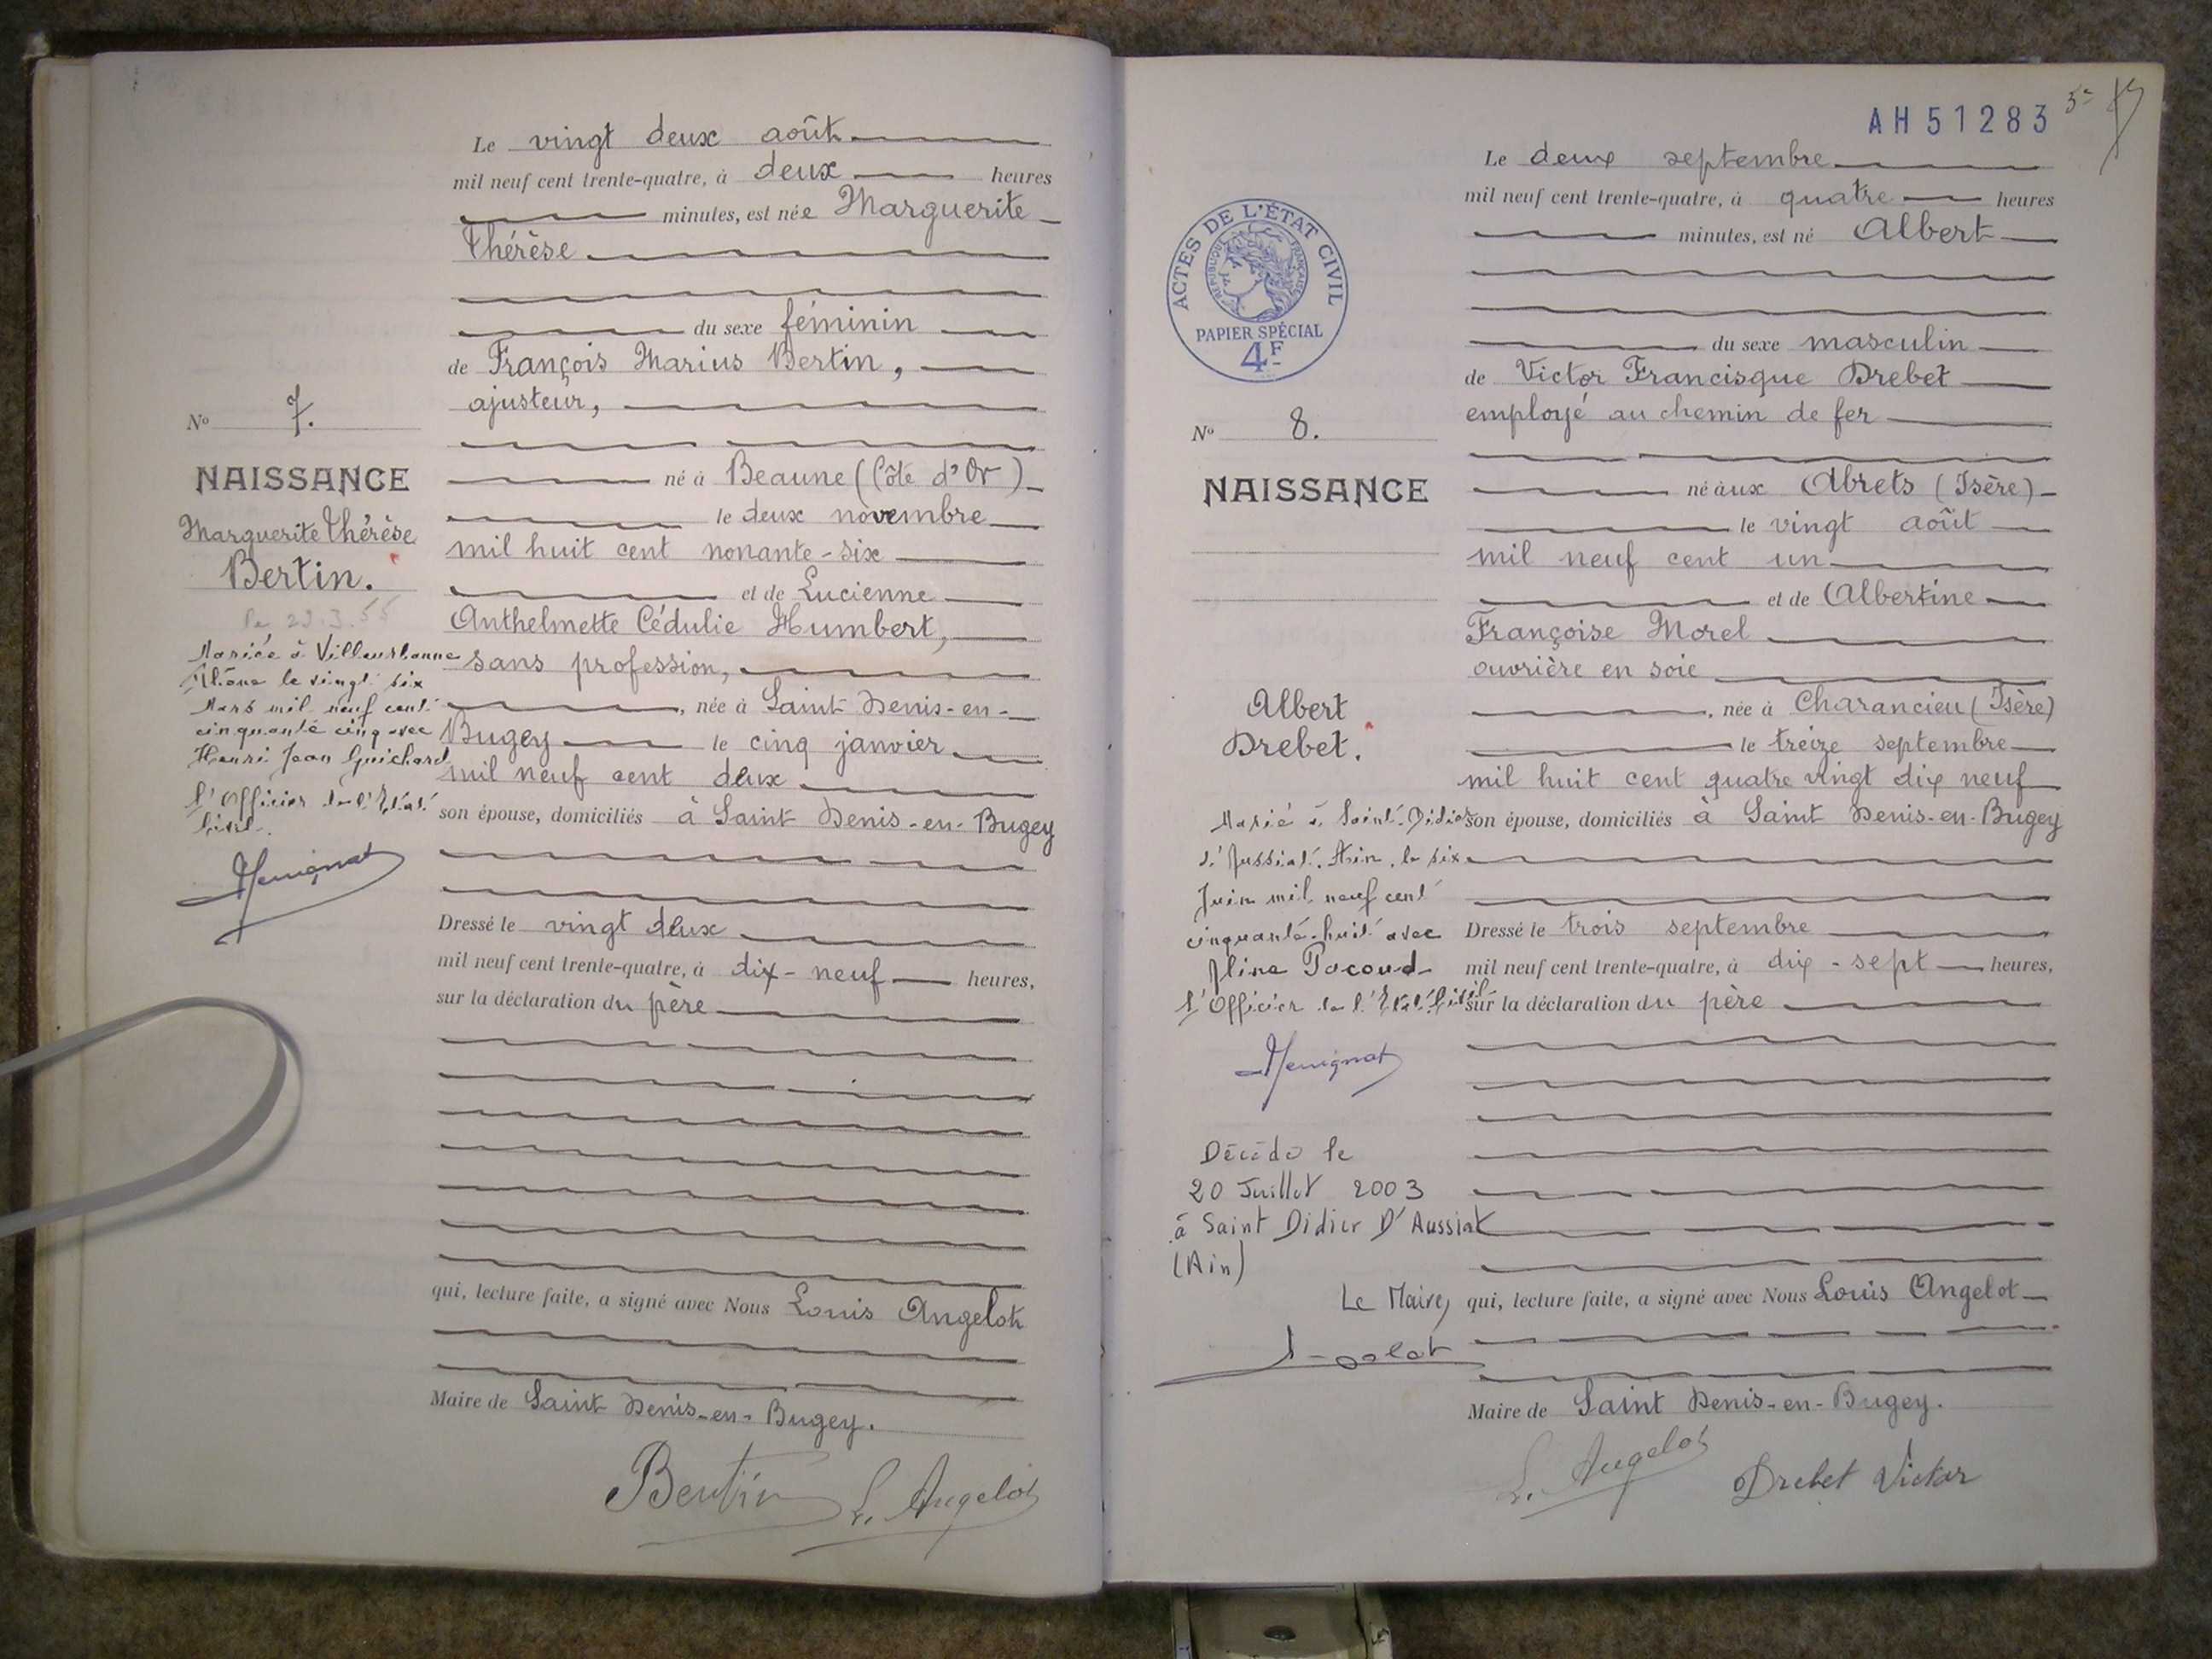 Le vingt deux août
mil neuf cent trente-quatre, à deux heures
minutes, est née Marguerite
Thérèse
du sexe féminin
de François Marius Bertin,
ajusteur,
né à Beaune (Côte d'Or)
le deux novembre
mil huit cent nonante-six
et de Lucienne
Anthelmette Cédulie Humbert,
sans profession,
, née à Saint Denis-en-
Bugey le cinq janvier
mil neuf cent deux
son épouse, domiciliés à Saint Denis-en-Bugey
Dressé le vingt deux
mil neuf cent trente-quatre, à dix-neuf heures,
sur la déclaration du père
qui, lecture faite, a signé avec Nous Louis Angelot
Maire de Saint Denis-en-Bugey.
Bertin L. Angelot
No 7.
NAISSANCE
Marguerite Thérèse
Bertin.
23.3.55
Mariée à Villeurbanne
Rhône le vingt six
Mars mil neuf cent
cinquante cinq avec
Henri Jean Guichard
l'Officier de l'Etat
Civil.
AH51283
ACTES DE L'ÉTAT CIVIL
RÉPUBLIQUE FRANÇAISE
PAPIER SPÉCIAL
4F
No 8.
NAISSANCE
Albert
Drebet.
Marié à Saint-Didier
d'Aussiat. Ain. le six
Juin mil neuf cent
cinquante-huit avec
Aline Pocoud
l'Officier de l'Etat Civil
Décédé le
20 Juillet 2003
à Saint Didier D'Aussiat
(Ain)
Le Maire,
Le deux septembre
mil neuf cent trente-quatre, à quatre heures
minutes, est né Albert
du sexe masculin
de Victor Francisque Drebet
employé au chemin de fer
né aux Abrets (Isère)
le vingt août
mil neuf cent un
et de Albertine
Françoise Morel
ouvrière en soie
, née à Charancieu (Isère)
le treize septembre
mil huit cent quatre vingt dix neuf
son épouse, domiciliés à Saint Denis-en-Bugey
Dressé le trois septembre
mil neuf cent trente-quatre, à dix-sept heures,
sur la déclaration du père
qui, lecture faite, a signé avec Nous Louis Angelot
Maire de Saint Denis-en-Bugey.
L. Angelot Drebet Victor